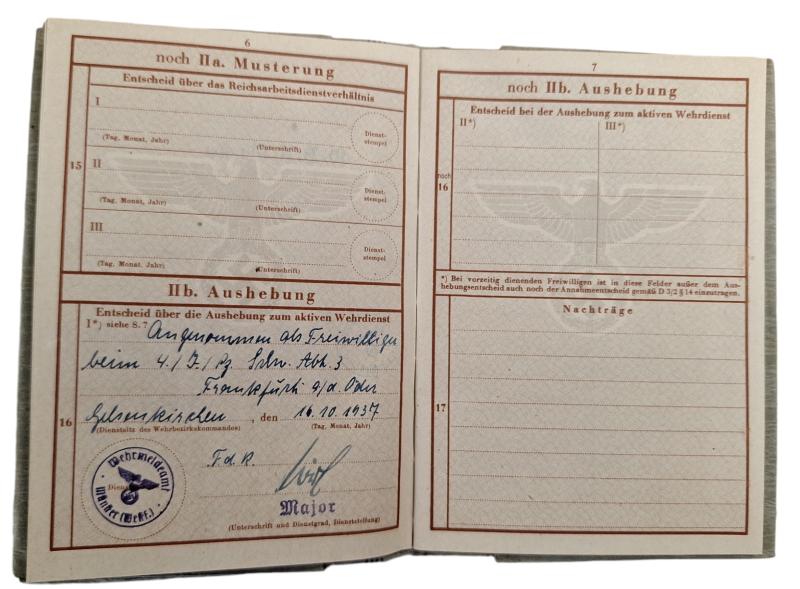 6
noch IIa. Musterung
Entscheid über das Reichsarbeitsdienstverhältnis
I
(Tag, Monat, Jahr)
(Unterschrift)
Dienst-
stempel
15
II
(Tag, Monat, Jahr)
(Unterschrift)
Dienst-
stempel
III
(Tag, Monat, Jahr)
(Unterschrift)
Dienst-
stempel
IIb. Aushebung
Entscheid über die Aushebung zum aktiven Wehrdienst
I*) siehe S. 7 Angenommen als Freiwilliger
beim 4./I./Pz. Schw. Abt. 3
Frankfurt a/d. Oder
16
Gelsenkirchen, den 16.10.1937
(Dienstsitz des Wehrbezirkskommandos)
(Tag, Monat, Jahr)
Wehrmeldeamt
Münster (Westf.)
F.d.R.
Major
(Unterschrift und Dienstgrad, Dienststellung)
7
noch IIb. Aushebung
Entscheid bei der Aushebung zum aktiven Wehrdienst
II*)
III*)
noch
16
*) Bei vorzeitig dienenden Freiwilligen ist in diese Felder außer dem Aus-
hebungsentscheid auch noch der Annahmeentscheid gemäß D 3/2 § 14 einzutragen.
Nachträge
17